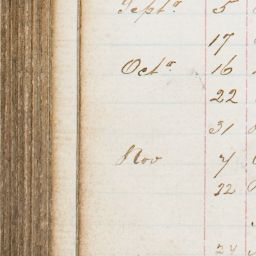 Septr 5
17
Octr 16
22
31
Nov 7
12